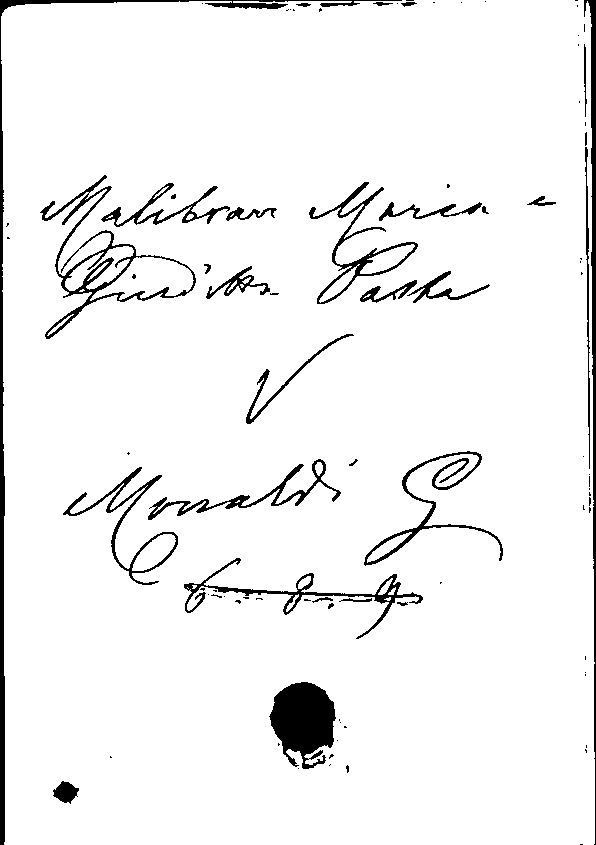 Malibran Maria e
Giuditta Pasta
V
Monaldi G
6. 8. 9